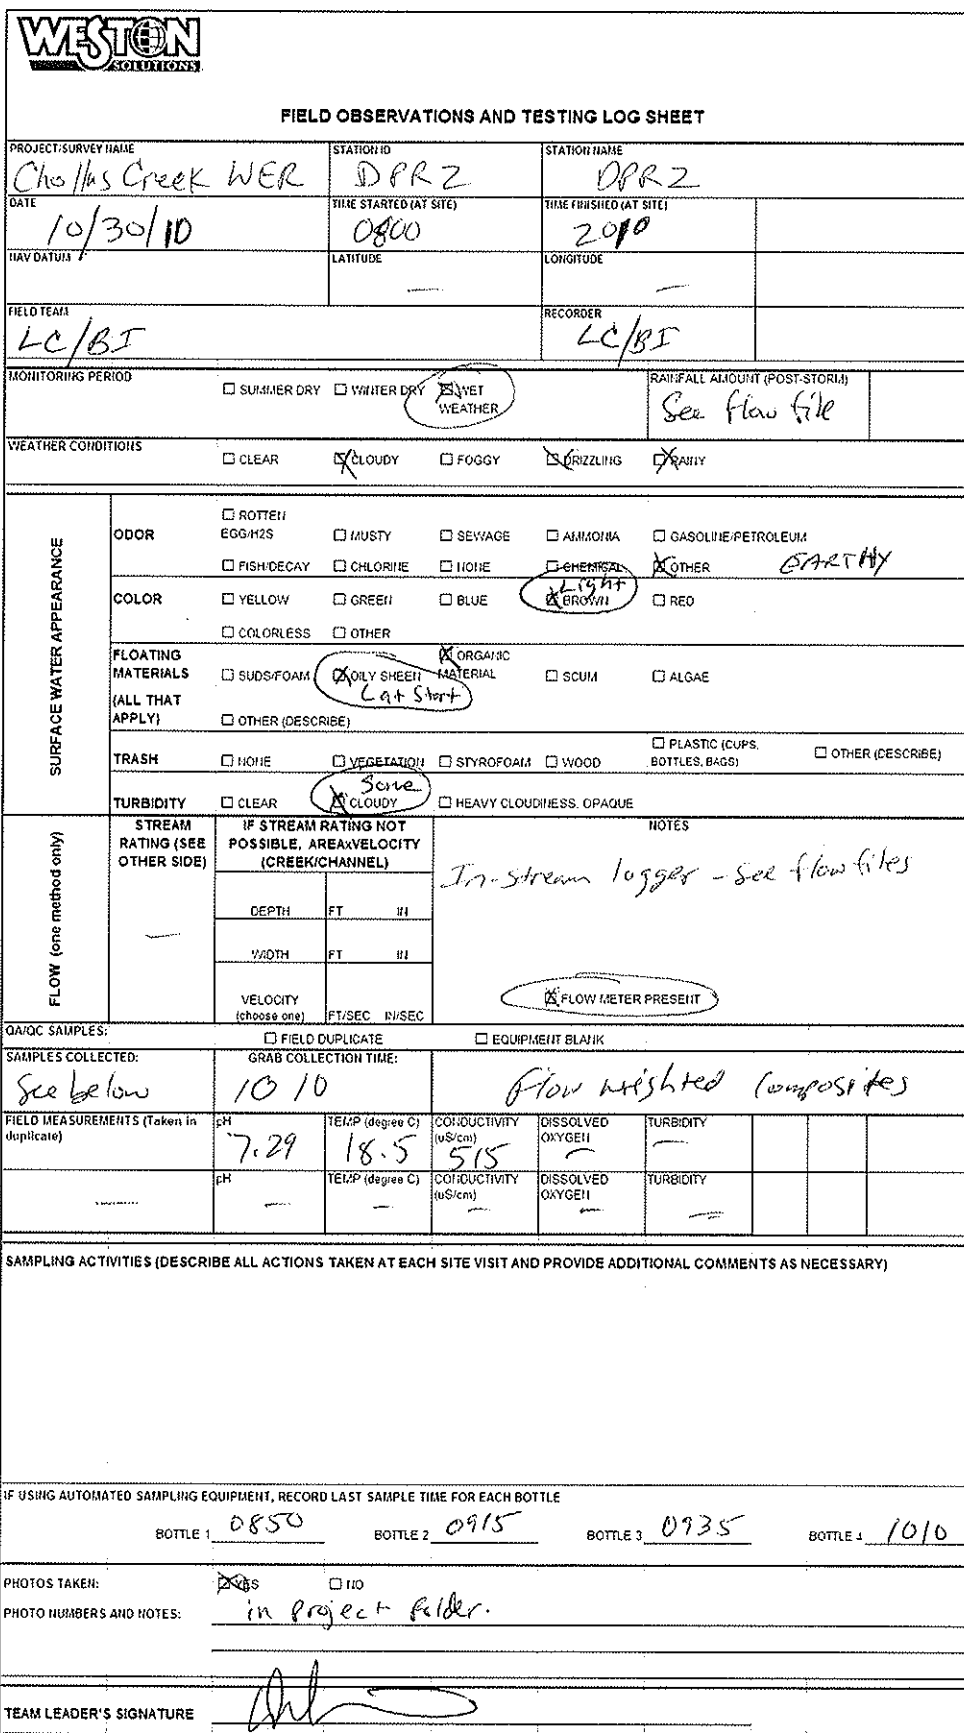 WESTON
SOLUTIONS
FIELD OBSERVATIONS AND TESTING LOG SHEET
PROJECT/SURVEY NAME STATION ID STATION NAME
Chollas Creek WER DPR2 DPR2
DATE TIME STARTED (AT SITE) TIME FINISHED (AT SITE)
10/30/10 0800 2010
NAV DATUM LATITUDE LONGITUDE
— —
FIELD TEAM RECORDER
LC/BI LC/BI
MONITORING PERIOD ☐ SUMMER DRY ☐ WINTER DRY ☒ WET WEATHER RAINFALL AMOUNT (POST-STORM)
See flow file
WEATHER CONDITIONS ☐ CLEAR ☒ CLOUDY ☐ FOGGY ☒ DRIZZLING ☒ RAINY
SURFACE WATER APPEARANCE
ODOR ☐ ROTTEN EGG/H2S ☐ MUSTY ☐ SEWAGE ☐ AMMONIA ☐ GASOLINE/PETROLEUM
☐ FISH/DECAY ☐ CHLORINE ☐ NONE ☐ CHEMICAL ☒ OTHER EARTHY
Light
COLOR ☐ YELLOW ☐ GREEN ☐ BLUE ☒ BROWN ☐ RED
☐ COLORLESS ☐ OTHER
FLOATING MATERIALS (ALL THAT APPLY) ☐ SUDS/FOAM ☒ OILY SHEEN ☒ ORGANIC MATERIAL ☐ SCUM ☐ ALGAE
at Start
☐ OTHER (DESCRIBE)
TRASH ☐ NONE ☐ VEGETATION ☐ STYROFOAM ☐ WOOD ☐ PLASTIC (CUPS, BOTTLES, BAGS) ☐ OTHER (DESCRIBE)
Some
TURBIDITY ☐ CLEAR ☒ CLOUDY ☐ HEAVY CLOUDINESS, OPAQUE
FLOW (one method only)
STREAM RATING (SEE OTHER SIDE) IF STREAM RATING NOT POSSIBLE, AREAxVELOCITY (CREEK/CHANNEL) NOTES
In-stream logger - See flow files
DEPTH FT IN
— WIDTH FT IN
VELOCITY (choose one) FT/SEC IN/SEC ☒ FLOW METER PRESENT
QA/QC SAMPLES: ☐ FIELD DUPLICATE ☐ EQUIPMENT BLANK
SAMPLES COLLECTED: GRAB COLLECTION TIME:
See below 1010 flow weighted composites
FIELD MEASUREMENTS (Taken in duplicate) pH TEMP (degree C) CONDUCTIVITY (uS/cm) DISSOLVED OXYGEN TURBIDITY
7.29 18.5 515 — —
pH TEMP (degree C) CONDUCTIVITY (uS/cm) DISSOLVED OXYGEN TURBIDITY
— — — — — —
SAMPLING ACTIVITIES (DESCRIBE ALL ACTIONS TAKEN AT EACH SITE VISIT AND PROVIDE ADDITIONAL COMMENTS AS NECESSARY)
IF USING AUTOMATED SAMPLING EQUIPMENT, RECORD LAST SAMPLE TIME FOR EACH BOTTLE
BOTTLE 1 0850 BOTTLE 2 0915 BOTTLE 3 0935 BOTTLE 4 1010
PHOTOS TAKEN: ☒ YES ☐ NO
PHOTO NUMBERS AND NOTES: in project folder.
TEAM LEADER'S SIGNATURE